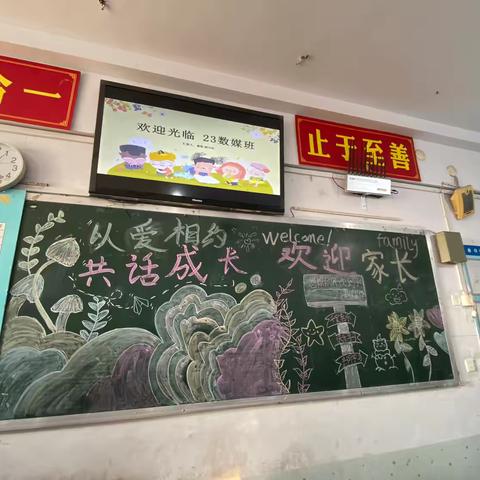 合一
欢迎光临 23数媒班
止于至善
从爱相约
welcome!
family
共话成长
欢迎家长